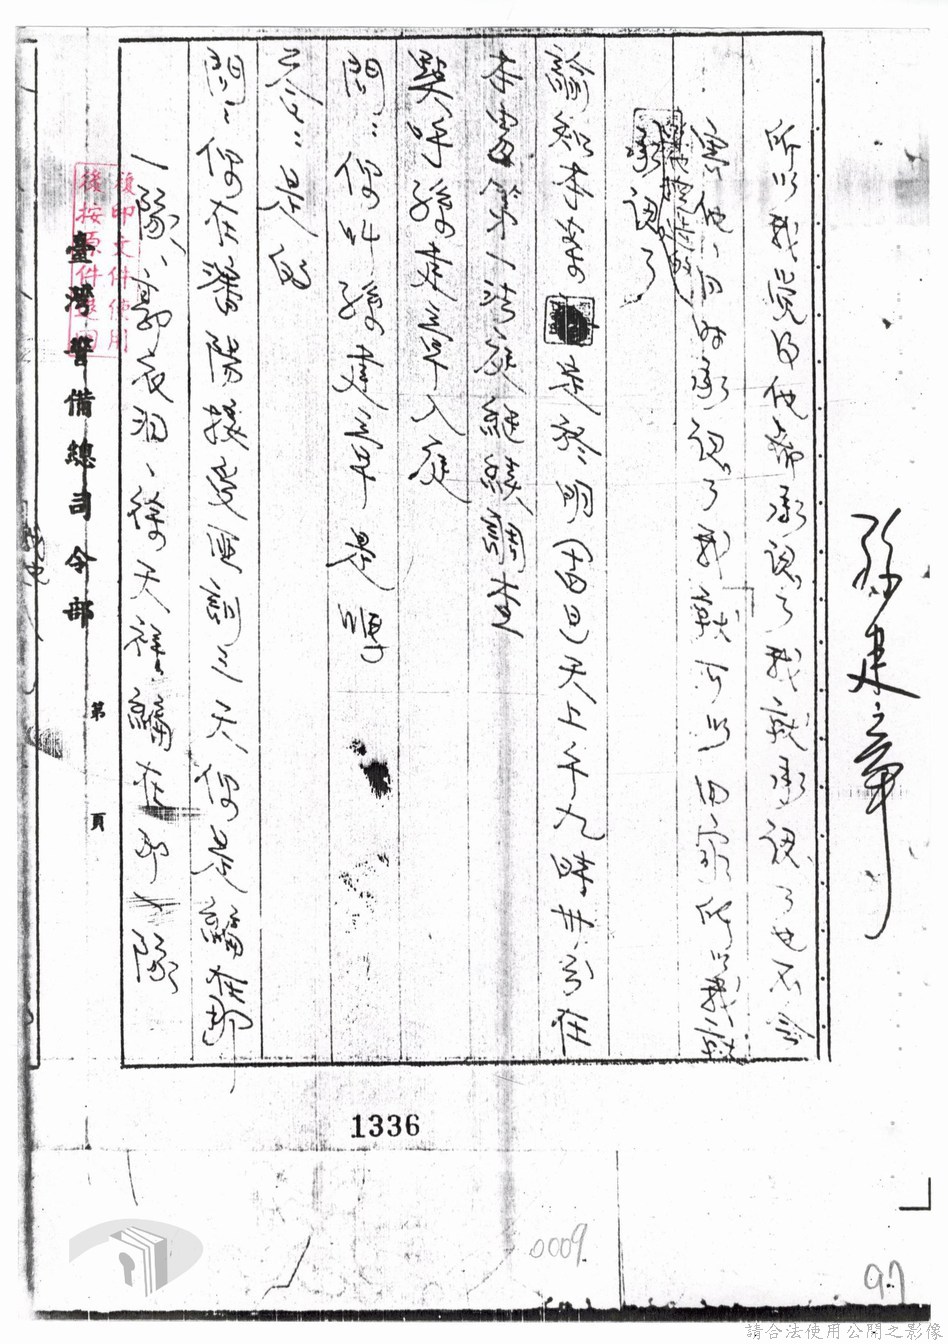 孫建章
所以我覺得他希承認了我就承認了也不會
害他、同時承認了我就可以回家所以我就
承認了
諭知本案 於明 日天上午九時廿分在
本處第一法庭繼續調查
點呼孫建章入庭
問:你叫孫建章是嗎
答:是的
問:你在瀋陽接受重訓三天你是編在那
一隊、郭衣洞、徐天祥編在那一隊
臺灣警備總司令部
第 頁
複印文件使用
後按原件退回
1336
0009
97
請合法使用公開之影像